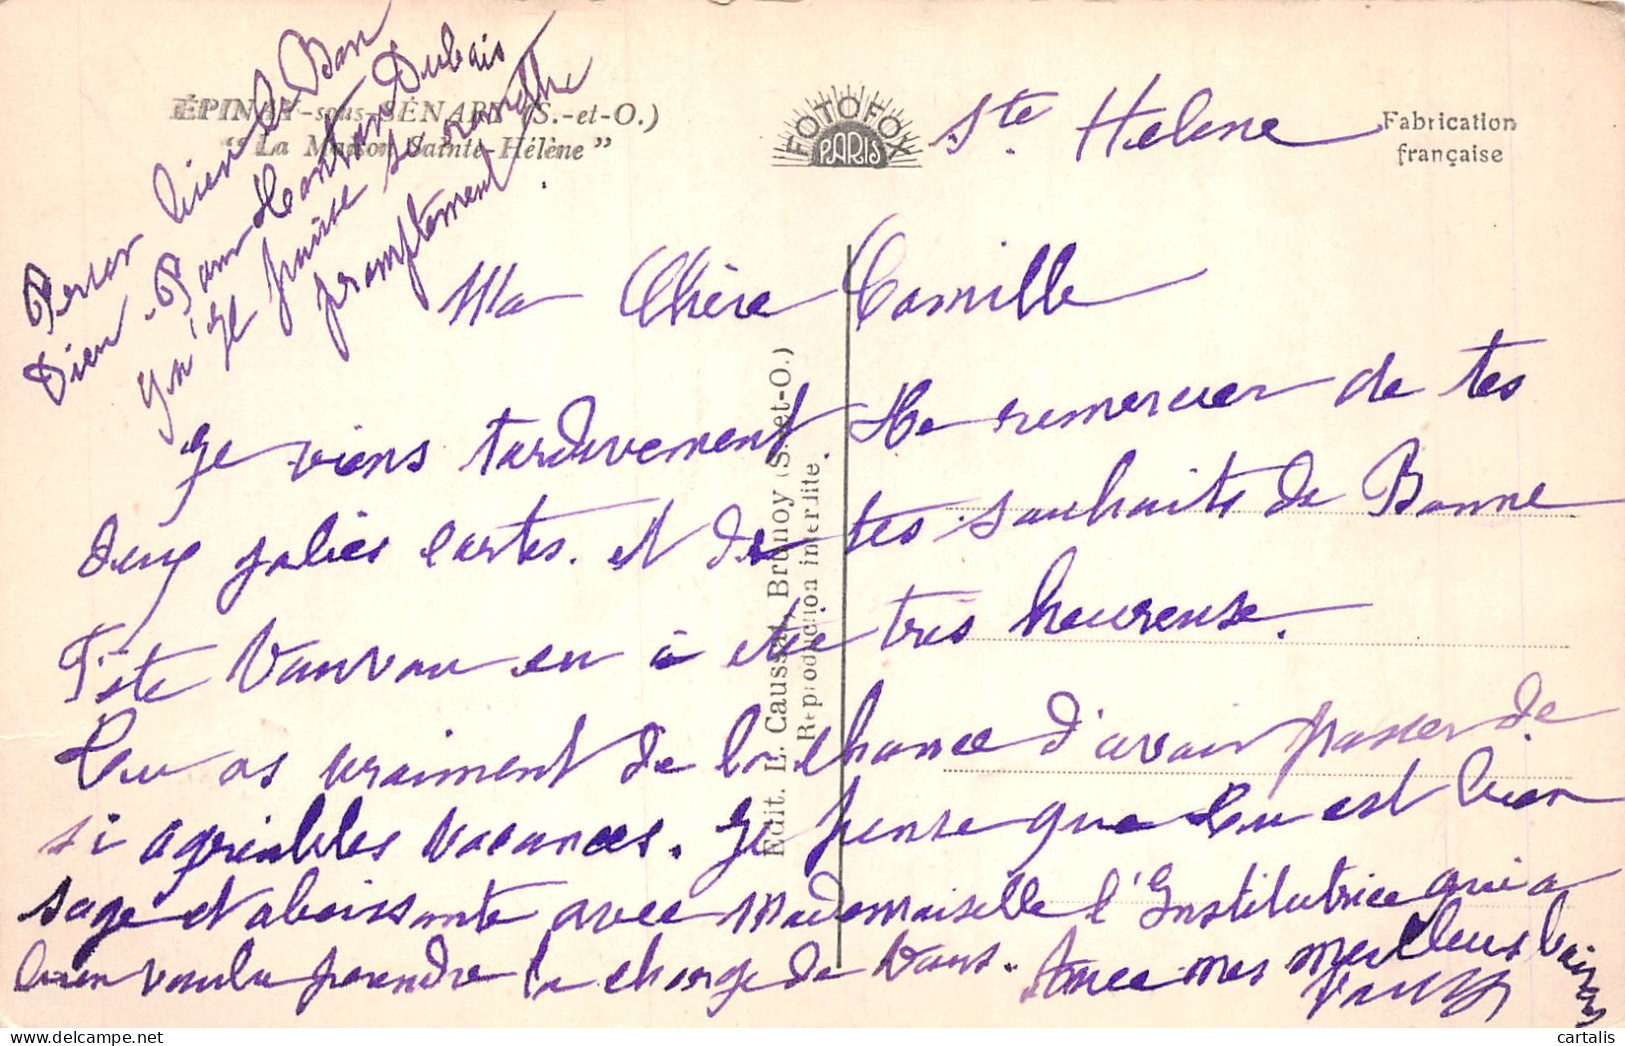 ÉPINAY-sous-SÉNART (S.-et-O.)
“ La Maison Sainte-Hélène ”
FOTOFOX
PARIS
Fabrication
française
Ste Helene
Ma Chère Camille
Je viens tardivement te remercier de tes
deux jolies cartes. et de tes souhaits de Bonne
Fête en a été très heureuse.
tu as vraiment de la chance d'avoir passer de
si agréables vacances. Je pense que tu est bien
sage et obeissante avec Mademoiselle l'Institutrice qui a
bien voulu prendre la charge de vous. Avec mes meilleurs baisers
Prier bien le Bon
Dieu. Pour
qu'il puisse se
promptement
Edit. L. Caussat, Brunoy (S.-et-O.)
Reproduction interdite.
delcampe.net
cartalis